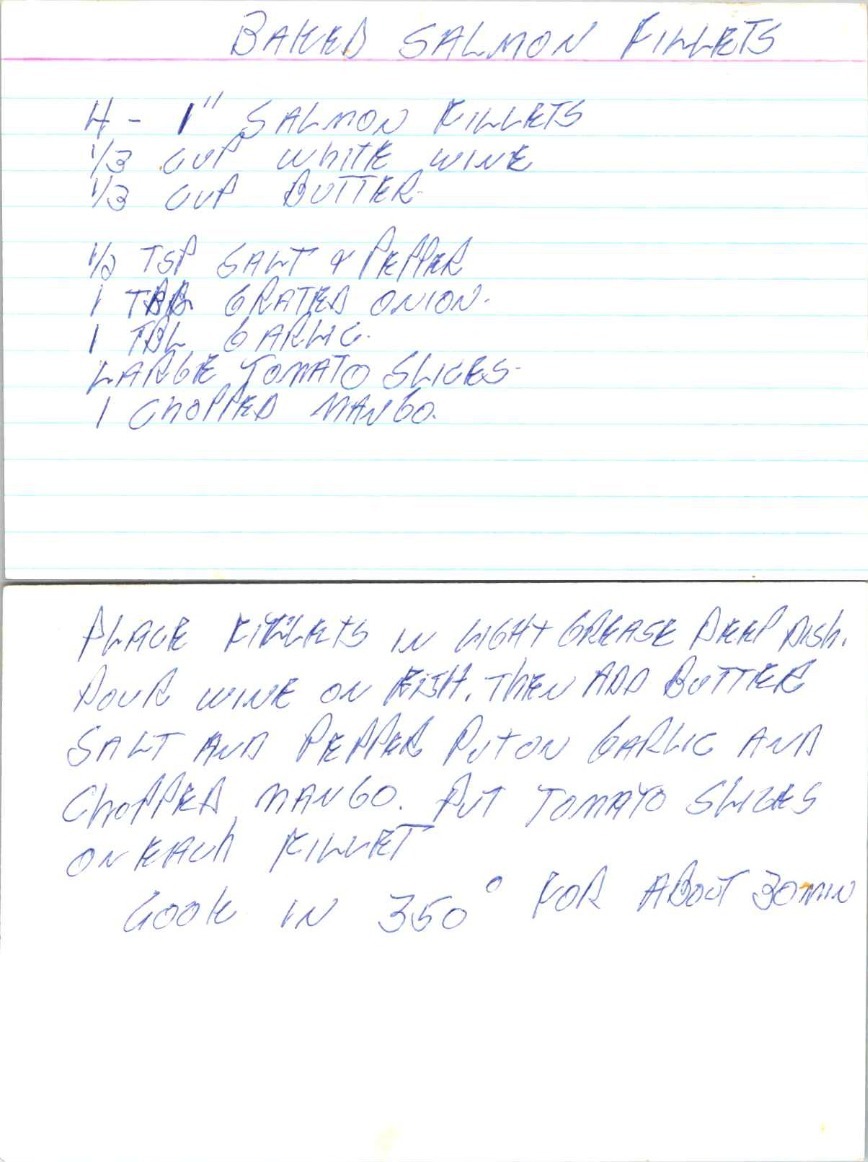 BAKED SALMON FILLETS
4 - 1" SALMON FILLETS
1/3 CUP WHITE WINE
1/3 CUP BUTTER.
1/2 TSP SALT & PEPPER
1 TBL GRATED ONION.
1 TBL GARLIC.
LARGE TOMATO SLICES.
1 CHOPPED MANGO.
PLACE FILLETS IN LIGHT GREASE DEEP DISH.
POUR WINE ON FISH. THEN ADD BUTTER
SALT AND PEPPER PUT ON GARLIC AND
CHOPPED MANGO. PUT TOMATO SLICES
ON EACH FILLET
COOK IN 350° FOR ABOUT 30 MIN